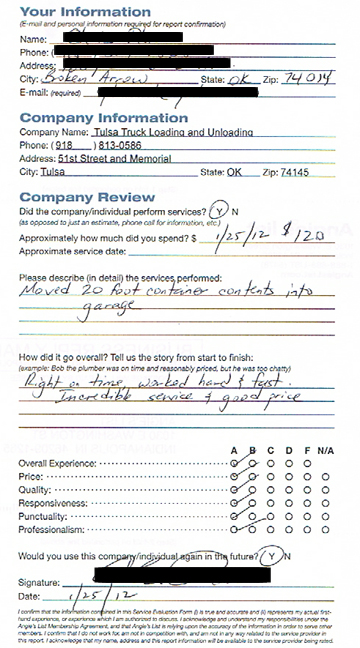 Your Information
(E-mail and personal information required for report confirmation)
Name:
Phone: (
Address:
City: Broken Arrow State: OK Zip: 74014
E-mail: (required)
Company Information
Company Name: Tulsa Truck Loading and Unloading
Phone: ( 918 ) 813-0586
Address: 51st Street and Memorial
City: Tulsa State: OK Zip: 74145
Company Review
Did the company/individual perform services? Y N
(as opposed to just an estimate, phone call for information, etc.)
Approximately how much did you spend? $ 1/25/12 $120
Approximate service date:
Please describe (in detail) the services performed:
Moved 20 foot container contents into
garage
How did it go overall? Tell us the story from start to finish:
(example: Bob the plumber was on time and reasonably priced, but he was too chatty)
Right on time, worked hard & fast.
Incredible service & good price
A B C D F N/A
Overall Experience:
Price:
Quality:
Responsiveness:
Punctuality:
Professionalism:
Would you use this company/individual again in the future? Y N
Signature:
Date: 1/25/12
I confirm that the information contained in this Service Evaluation Form (i) is true and accurate and (ii) represents my actual first-
hand experience, or experience which I am authorized to discuss. I acknowledge and understand my responsibilities under the
Angie's List Membership Agreement, and that Angie's List is relying upon the accuracy of the information in order to serve other
members. I confirm that I do not work for, am not in competition with, and am not in any way related to the service provider in
this report. I acknowledge that my name, address and this report information will be available to the service provider being rated.